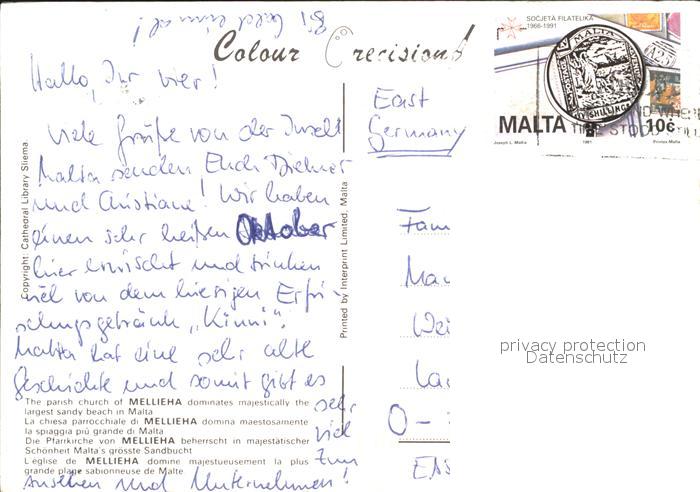 Bis bald einmal!
Colour Precision
Hallo, Ihr vier!
Viele Grüße von der Insel
Malta senden Euch Dietmar
und Christiane! Wir haben
einen sehr heißen Oktober
hier erwischt und trinken
viel von dem hiesigen Erfri-
schungsgetränk „Kinni“.
Malta hat eine sehr alte
Geschichte und somit gibt es
sehr
viel
zum
Ansehen und Unternehmen!
The parish church of MELLIEHA dominates majestically the
largest sandy beach in Malta
La chiesa parrocchiale di MELLIEHA domina maestosamente
la spiaggia più grande di Malta
Die Pfarrkirche von MELLIEHA beherrscht in majestätischer
Schönheit Malta's grösste Sandbucht
L'église de MELLIEHA domine majestueusement la plus
grande plage sabionneuse de Malte
Copyright: Cathedral Library Sliema
Printed by Interprint Limited, Malta
SOCJETÀ FILATELIKA
1966-1991
MALTA
MALTA 10c
Joseph L. Malta 1991 Printex Malta
East
Germany
Fam
Mar
Wei
La
O-
EAS
privacy protection
Datenschutz